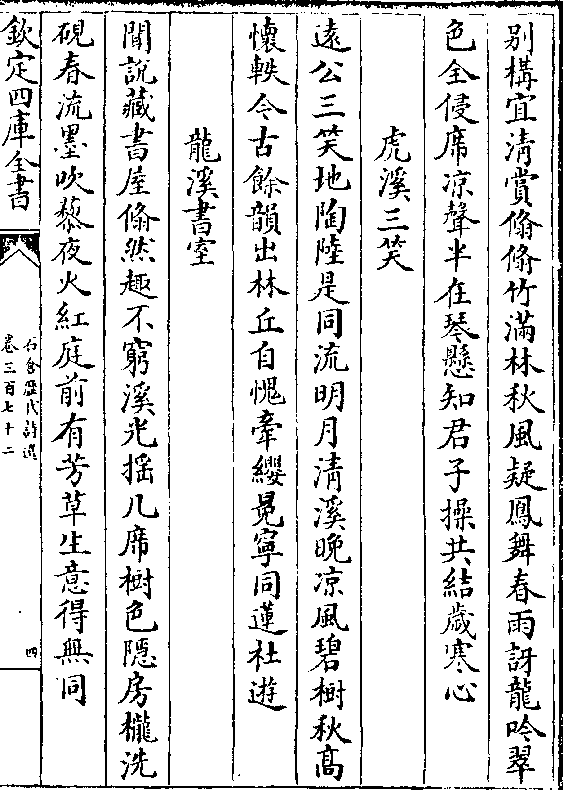 别構宜清賞翛翛竹滿林秋風疑鳳舞春雨訝龍吟翠
色全侵席凉聲半在琴懸知君子操共結歲寒心
虎溪三笑
遠公三笑地陶陸是同流明月清溪晚凉風碧樹秋高
懷軼今古餘韻出林丘自愧牽纓冕寧同蓮社遊
龍溪書室
聞說藏書屋翛然趣不窮溪光揺几席樹色隱房櫳洗
硯春流墨吹藜夜火紅庭前有芳草生意得無同
欽定四庫全書
石倉歷代詩選
卷三百七十二
四